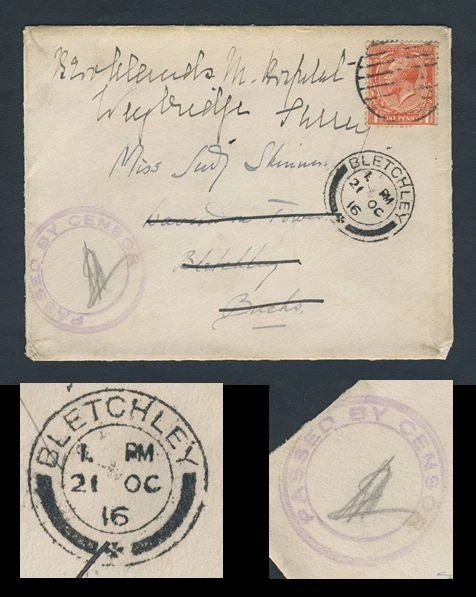 Brooklands M. Hospital
Weybridge Surrey
Miss Judy Skinner
Tower
Bletchley
Bucks.
ONE PENNY
BLETCHLEY
1. PM
21 OC
16
PASSED BY CENSOR
BLETCHLEY
1. PM
21 OC
16
PASSED BY CENSOR